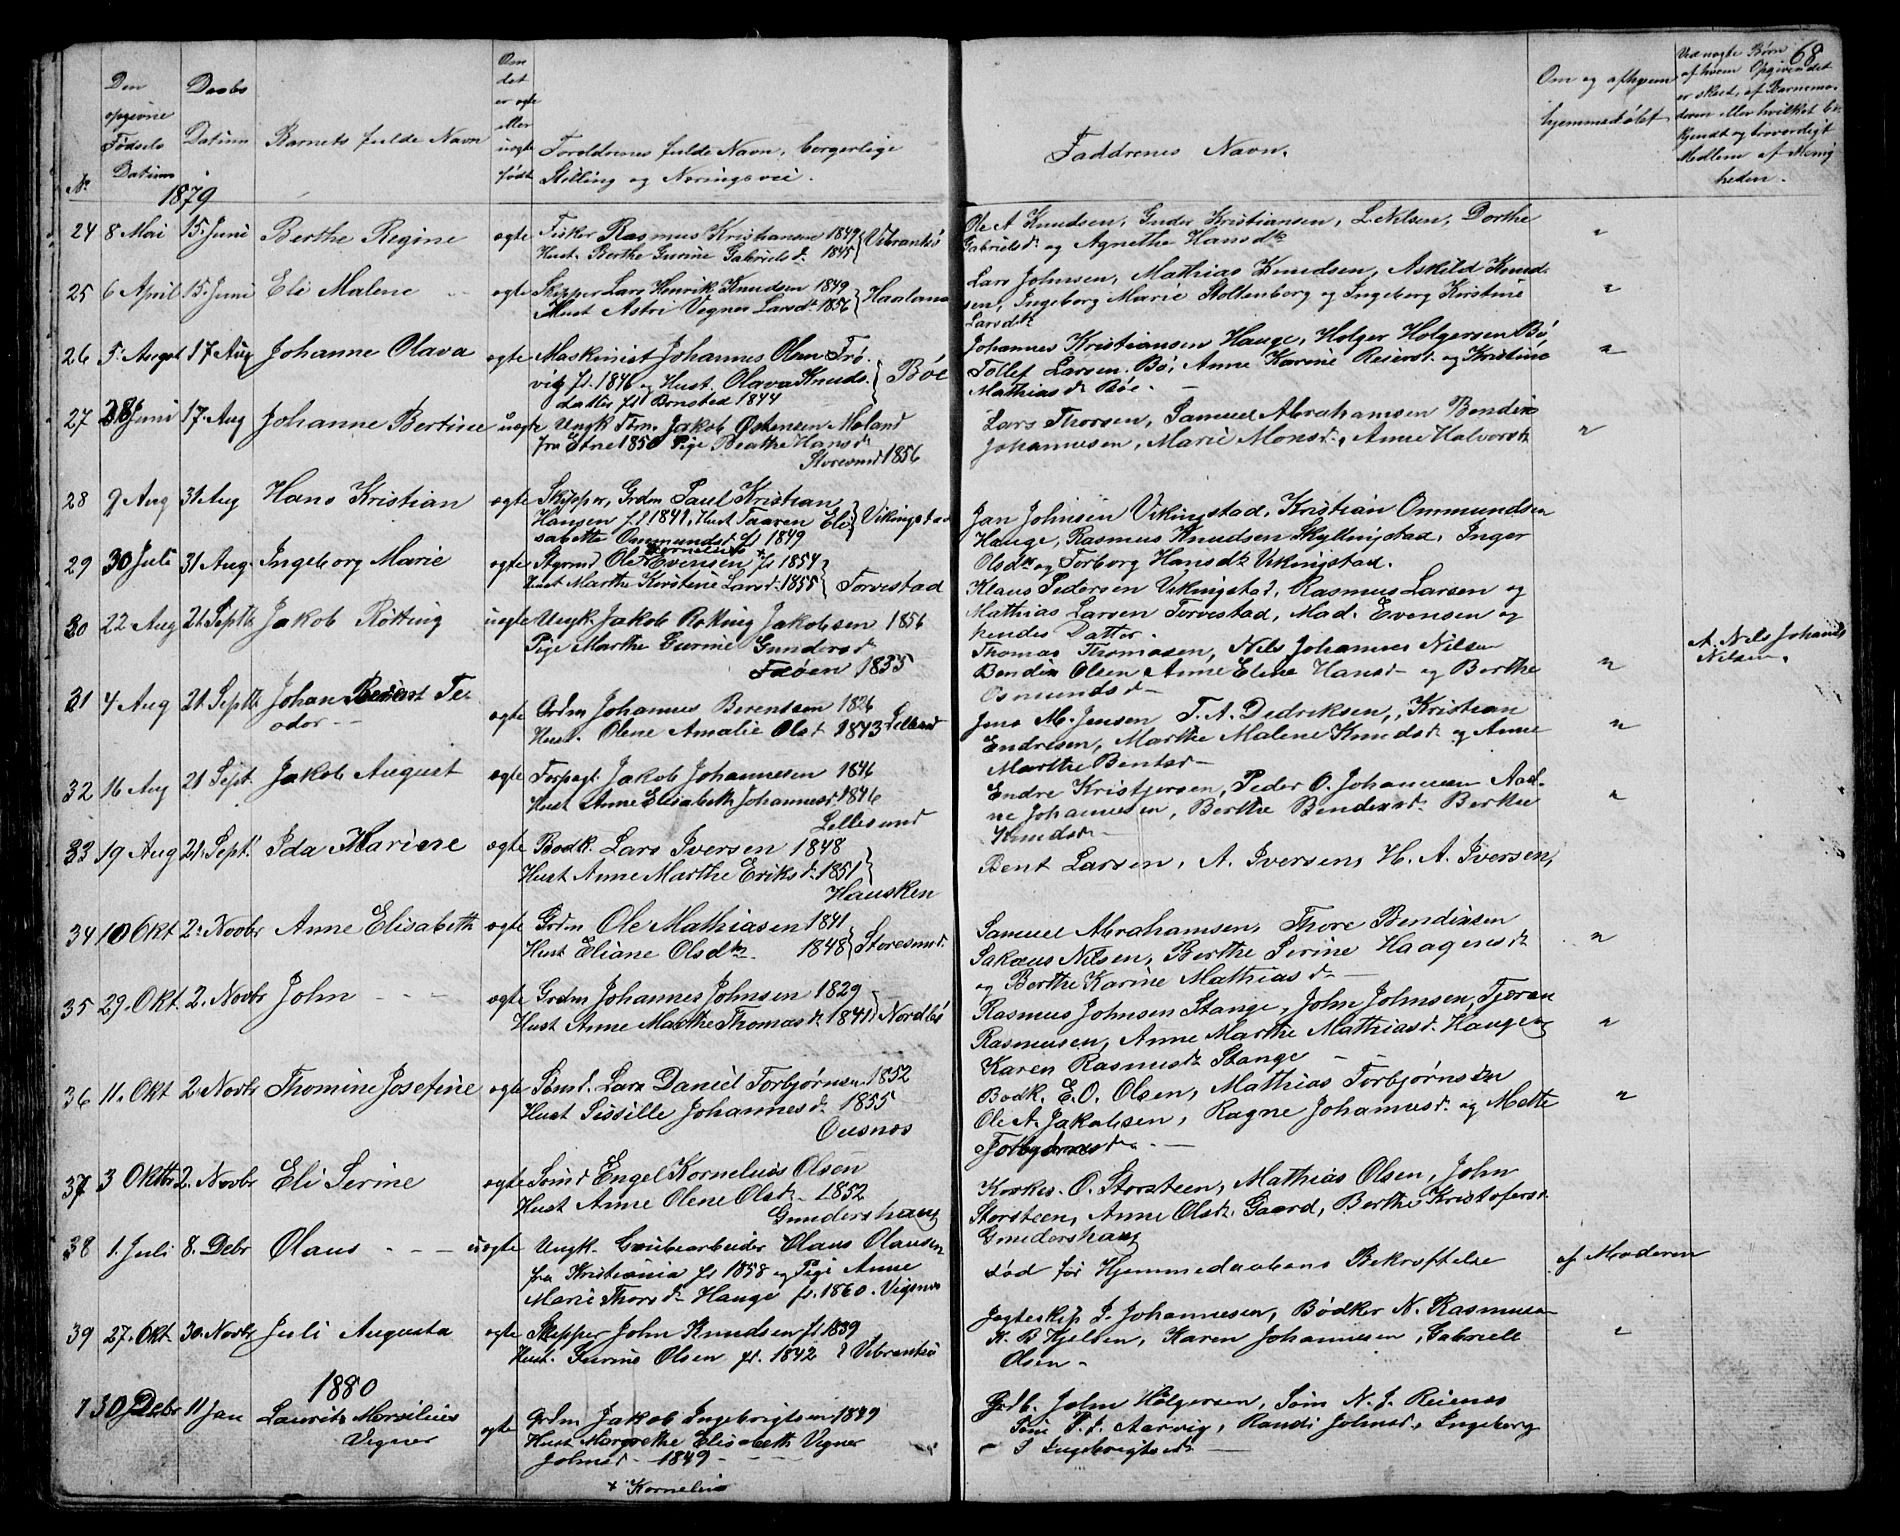 68
Den opgivne Fødsels Datum
Daabs Datum
Barnets fulde Navn
Om det er ægte eller uægte født
Foreldrenes fulde Navn, borgerlige
Stilling og Næringsvei.
Faddrenes Navn.
Om og af hvem
hjemmedøbt
Ved uægte Børn
af hvem Opgivendet
er skeet, af Barnemo-
deren eller hvilket be-
kjendt og troværdigt
Medlem af Menig
heden.
No
1879
24 8 Mai 15. Juni Berthe Regine ægte Fisker Rasmus Kristiansen 1849
Hust. Berthe Gurine Gabrielsd. 1845 } Vibrantsø
Ole A Knudsen, Guder Kristiansen, L. Nilsen, Dorthe
Gabrielsd. og Agnethe Hansdtr "
25 6 April 15. Juni Eli Malene ægte Skipper Lars Henrik Knudsen 1849
Hust Astri Vigner Larsd. 1856 } Haaland
Lars Johnsen, Mathias Knudsen, Askild Knud-
sen, Ingeborg Marie Stoltenberg og Ingeborg Kirstine
Larsdtr "
26 5. August 17 Aug Johanne Olava ægte Maskinist Johannes Olsen Frø-
vig fs. 1846 og Hust. Olava Knuds-
datter fs Brusted 1844 } Bøe
Johannes Kristiansen Hauge, Holger Holgersen Bø,
Tollef Larsen Bø, Anne Karine Reiersd. og Kristine
Mathiasd. Bøe. "
27 28 Juni 17 Aug Johanne Bertine uægte Ungk Tøm. Jakob Østensen Moland
fra Etne 1850 Pige Beathe Hansd.
Storesund 1856
Lars Thorsen, Samuel Abrahamsen Bendix
Johannesen, Marie Monsd., Anne Halvorsd. "
28 9 Aug 31 Aug Hans Kristian ægte Skipper, Grdm Paul Kristian
Hansen fs 1841, Hust Taaren Eli-
sabette Ommundsd. fs 1849 } Vikingstad
Jan Johnsen Vikingstad, Kristian Ommundsen
Hauge, Rasmus Knudsen Skyllingstad, Inger
Olsdtr og Torborg Hansdtr Vikingstad.
29 30 Juli 31 Aug. Ingeborg Marie ægte Styrmd Ole Kornelius + Evensen fs 1854
Hust Marthe Kirstine Larsd. 1855 } Torvestad
Klaus Pedersen Vikingstad, Rasmus Larsen og
Mathias Larsen Torvestad, Mad. Evensen og
hendes Datter.
30 22 Aug 21. Septb Jakob Røtting uægte Ungk. Jakob Røtting Jakobsen 1856
Pige Marthe Gurine Gundersd.
Fæøen 1855
Thomas Thomasen, Nils Johannes Nilsen
Bendix Olsen Anne Eline Hansd. og Berthe
Osmundsd. "
A. Nils Johanes
Nilsen.
31 4 Aug 21. Septb Johan Berent Te-
odor ægte Grdm Johannes Berentsen 1826
Hust. Olene Amalie Olsd. 1843 Lillesund
Jens M. Jensen, T. A. Dedriksen, Kristian
Endresen, Marthe Malene Knudsd. og Anne
Marthe Bentsd. "
32 16 Aug 21 Sept. Jakob August ægte Forpagt. Jakob Johannesen 1846
Hust Anne Elisabeth Johannesd. 1846
Lillesund
Endre Kristjersen, Peder O. Johannesen Aad-
ne Johannesen, Berthe Bendixsd. Berthe
Knudsd. "
33 19 Aug 21. Sept. Ida Marine ægte Bødk. Lars Iversen 1848
Hust Anne Marthe Eriksd. 1851 }
Hausken
Bent Larsen, A. Iversen, H. A. Iversen,
34 10 Okt 2. Novbr Anne Elisabeth ægte Grdm Ole Mathiasen 1841
Hust Eliane Olsdtr. 1848 } Storesund.
Samuel Abrahamsen, Thore Bendixsen
Sakæus Nilsen, Berthe Serine Haagensd.
og Berthe Karine Mathiasd. "
35 29. Okt. 2. Novbr John ægte Grdm Johannes Johnsen 1829
Hust Anne Marthe Thomasd. 1841 } Nordbø
Rasmus Johnsen Stange, John Johnsen, Tjeran
Rasmusen, Anne Marthe Mathiasd. Hauge og
Karen Rasmusd. Stange "
36 11. Okt 2. Novbr Thomine Josefine ægte Sømd. Lars Daniel Torbjørnsen 1852
Hust Sissille Johannesd. 1855
Ousnæs
Bødk. E. O. Olsen, Mathias Torbjørnsen
Ole A. Jakobsen, Ragne Johannesd. og Mette
Torbjørnsd. "
37 3 Oktbr 2. Novbr Eli Serine ægte Sømd Engel Kornelius Olsen
Hust Anne Olene Olsd. 1852
Gundershaug
Korkes. O. Storsteen, Mathias Olsen, John
Storsteen, Anne Olsd. Gaard, Berthe Kristofersd.
Gundershaug
38 1. Juli 8. Debr Olaus uægte Ungk. Grubearbeider Olaus Olausen
fra Kristiania fs 1858 og Pige Anne
Marie Thorsd. Hauge fs. 1860. Vigsnes
død før Hjemmedaabens Bekræftelse
af Moderen
39 27. Okt. 30. Novbr Juli Augusta ægte Skipper John Knudsen fs 1839
Hust. Gurine Olsen fs. 1842 } Vibrantsø
Jagteskip J. Johannesen, Bødker N. Rasmusen
K. B Hjelsen, Karen Johannesen, Gabriele
Olsen. "
1880
1 30 Debr 11 Jan Laurits Marsilius
Vigner ægte Grdm Jakob Ingebrigtsen 1849
Hust Margrethe Elisabeth Vigner
Johnsd. 1849
Grdb. John Holgersen, Søm N. J. Reienæs
Søm P. J. Aarvig, Randi Johnsd., Ingeborg
S Ingebrigtsd.
+ Kornelius